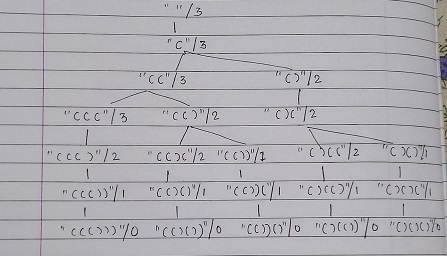 " "/3
"("/3
"(("/3 "()"/2
"((("/3 "(()"/2 "()("/2
"((()"/2 "(()("/2 "(())"/1 "()(("/2 "()()"/1
"((())"/1 "(()()"/1 "(())("/1 "()(()"/1 "()()("/1
"((()))"/0 "(()())"/0 "(())()"/0 "()(())"/0 "()()()"/0